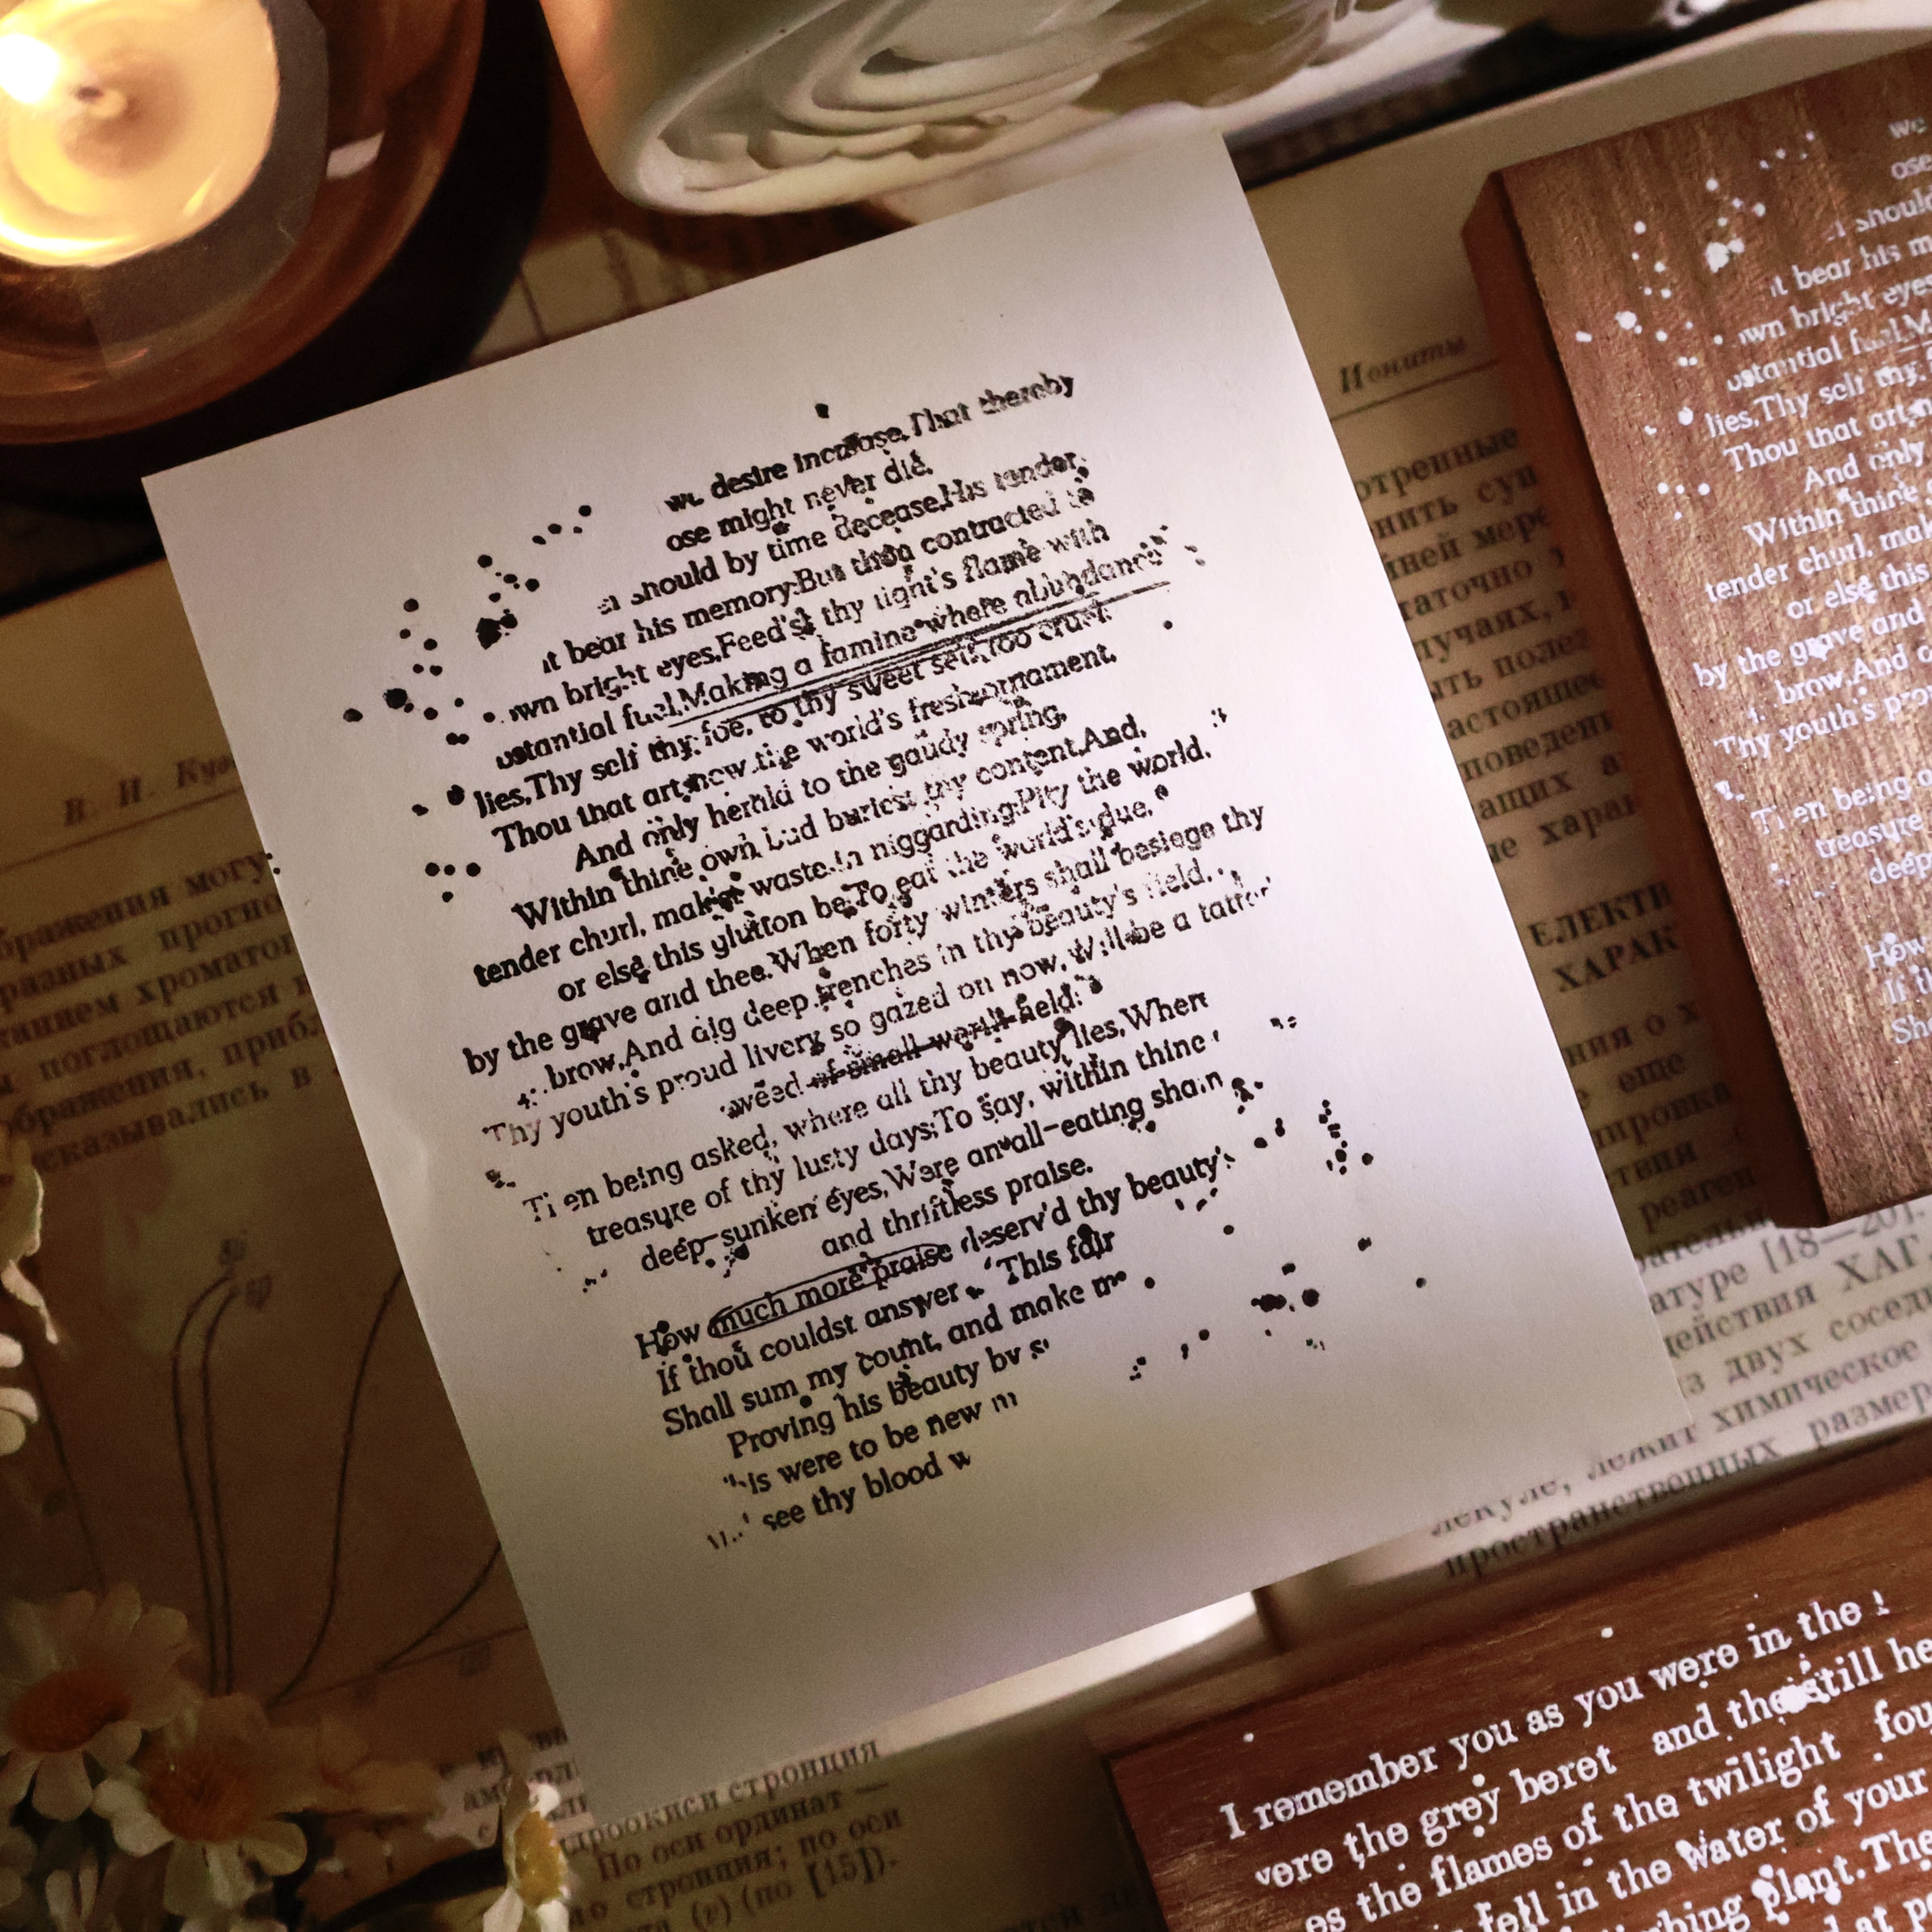 desire increase,That thereby
ose might never die,
should by time decease,His tender
bear his memory:But thou contracted to
own bright eyes,Feed'st thy light's flame with
ustantial fuel,Making a famine where abundance
lies,Thy self thy foe, to thy sweet self too cruel:
Thou that art now the world's fresh ornament,
And only herald to the gaudy spring,
Within thine own bud buriest thy content,And,
tender churl, mak'st waste in niggarding:Pity the world,
or else this glutton be,To eat the world's due,
by the grave and thee.When forty winters shall besiege thy
brow,And dig deep trenches in thy beauty's field,
Thy youth's proud livery so gazed on now,Will be a tatter
weed of small worth held:
being asked, where all thy beauty lies,Where
treasure of thy lusty days;To say, within thine
deep-sunken eyes,Were an all-eating sham
and thriftless praise.
How much more praise deserv'd thy beauty's
If thou couldst answer 'This fair
Shall sum my count, and make m
Proving his beauty by s
his were to be new m
see thy blood w
Иониты
отренные
нить
ней мере
таточно
лучаях,
ть полез
астояще
поведени
ащих
хара
ЕЛЕКТИ
ХАРАК
ния о х
еще
пировка
ствия
реаген
атуре [18—20].
действия ХАГ
з двух сосед
лежит химическое
пространственных размер
В. И. Куз
бражения могу
разных прогно
танием хроматог
поглощаются
ображения, прибл
сказывались в
строкиси стронция
По оси ординат —
стронция; по оси
(г) (по [15]).
we
ose
should
it bear his m
own bright eyes
ustantial fuel,M
lies,Thy self thy
Thou that art
And only
Within thine
tender churl, mak
or else this
by the grave and
brow,And d
Thy youth's pro
en being a
treasure
deep
How
If t
Sh
I remember you as you were in the
were the grey beret and the still he
es the flames of the twilight fou
fell in the Water of your
plant.The